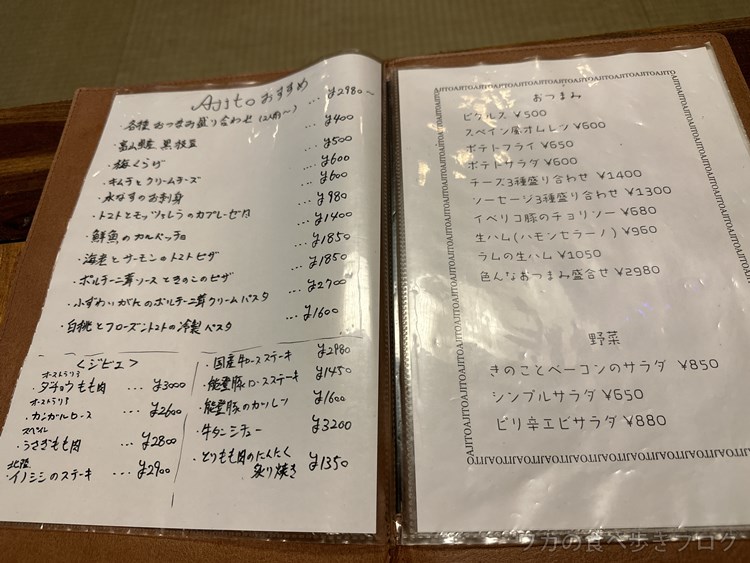 Ajitoおすすめ
・各種おつまみ盛り合わせ(2人前〜) … ¥2980〜
・富山県産 黒枝豆 … ¥400
・梅くらげ … ¥500
・キムチとクリームチーズ … ¥600
・水なすのお刺身 … ¥600
・トマトとモッツァレラのカプレーゼ … ¥980
・鮮魚のカルパッチョ … ¥1400
・海老とサーモンのトマトピザ … ¥1850
・ポルチーニ茸ソースときのこのピザ … ¥1850
・ふずわいがにのポルチーニ茸クリームパスタ … ¥2700
・白桃とフローズントマトの冷製パスタ … ¥1600
<ジビエ>
オーストラリア
・ダチョウもも肉 … ¥3000
オーストラリア
・カンガルーロース … ¥2600
スペイン
・うさぎもも肉 … ¥2800
北陸
・イノシシのステキ … ¥2900
・国産牛ロースステーキ ¥2980
・能登豚ロースステーキ ¥1450
・能登豚のカツレツ ¥1600
・牛タンシチュー ¥3200
・とりもも肉のにんにく
炙り焼き ¥1350
AJITOAJITOAJITOAJITOAJITOAJITOAJITOAJITOAJITO
おつまみ
ピクルス ¥500
スペイン風オムレツ ¥600
ポテトフライ ¥650
ポテトサラダ ¥600
チーズ3種盛り合わせ ¥1400
ソーセージ3種盛り合わせ ¥1300
イベリコ豚のチョリソー ¥680
生ハム(ハモンセラーノ) ¥960
ラムの生ハム ¥1050
色んなおつまみ盛合せ ¥2980
野菜
きのことベーコンのサラダ ¥850
シンプルサラダ ¥650
ピリ辛エビサラダ ¥880
ウカの食べ歩きブログ